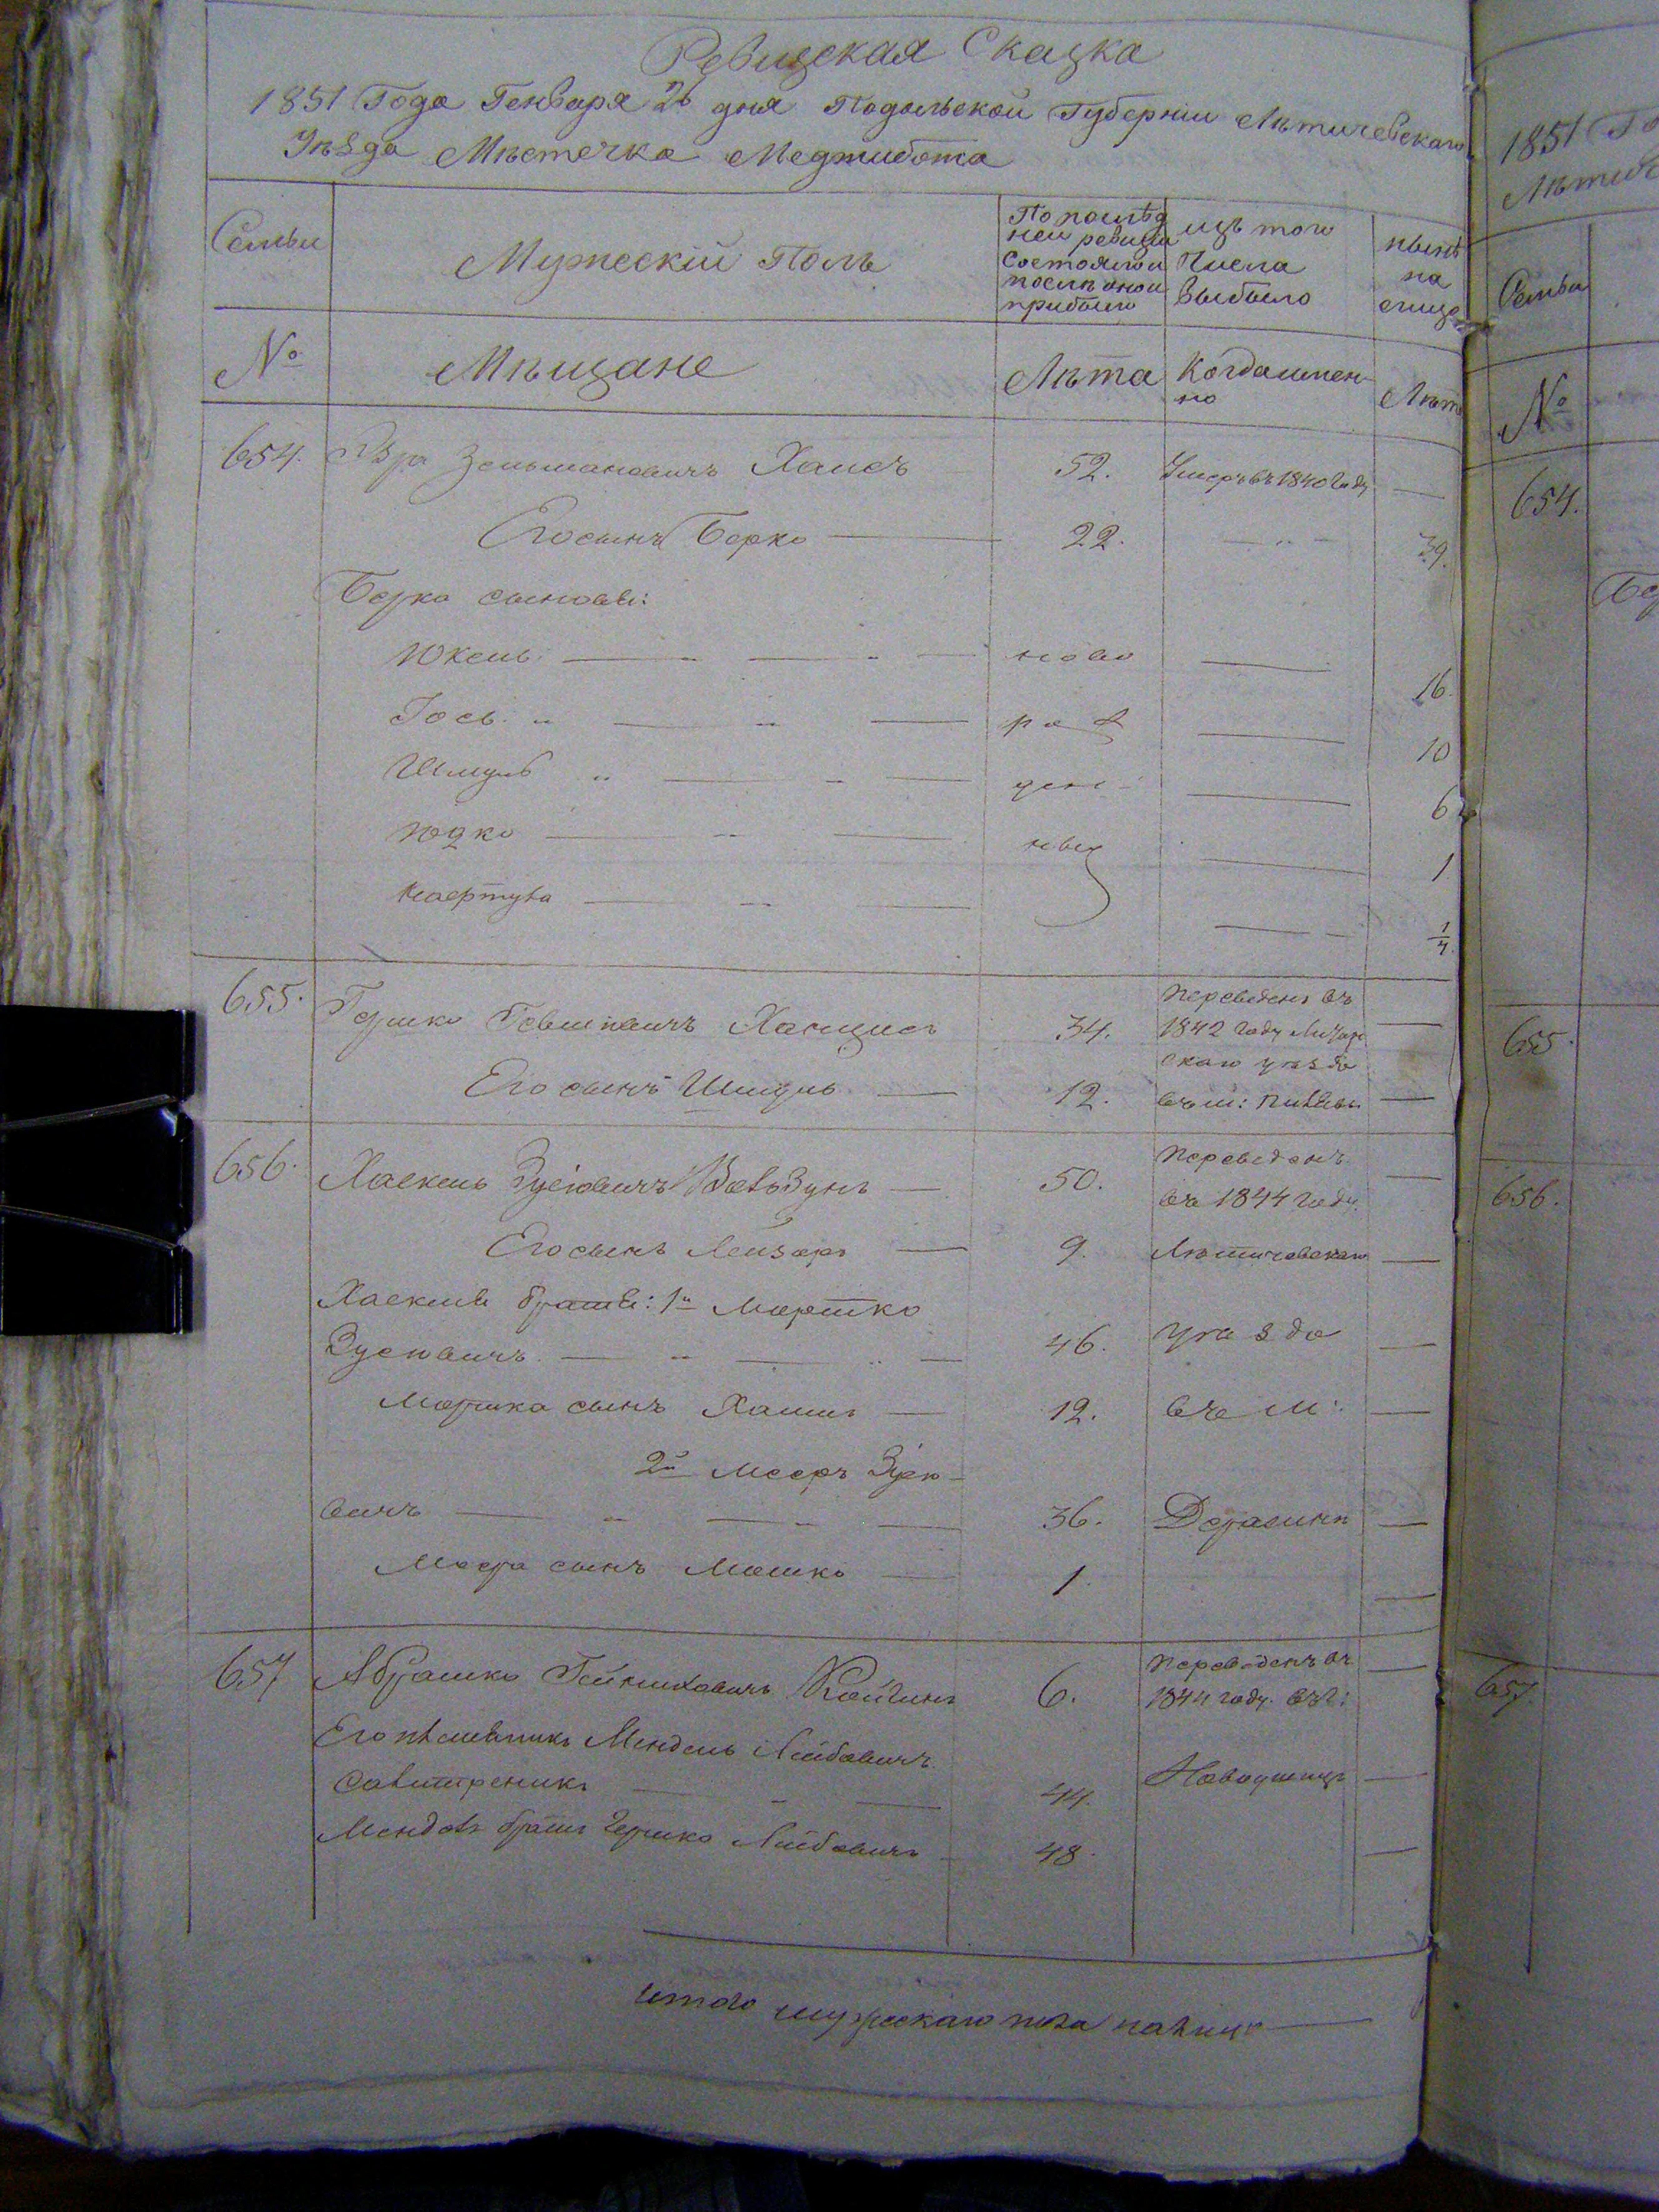 Ревизская Сказка
1851 Года Генваря 26 дня Подольской Губерніи Лѣтичевскаго
Уѣзда Мѣстечка Меджибожа
Семьи
Мужескій Полъ
По послѣд
ней ревизіи
состояло и
послѣ оной
прибыло
изъ того
Числа
Выбыло
нынѣ
на
лицо
№
Мѣщане
Лѣта
Когда имен-
но
Лѣта
654. Зельмановичъ 52. Умеръ въ 1840 Году —
Его сынъ Берко — 22. — 39.
Берка сыновьи:
Юкель — ново — 16.
Іось — рож — 10
Шмуль — ден — 6
Юдко — ныя — 1
— 1/4
655. Гершко 34. Переведенъ въ 1842 Году —
скаго уѣзда
Его сынъ Шмуль — 12. въ м: —
656. Хаскель Зусіовичъ 50. Переведенъ —
въ 1844 Году.
Его сынъ Лейзоръ — 9. Лѣтичевскаго —
Хаскеля братьи: 1й Мошко
Зусіовичъ — 46. уѣзда —
Мошка сынъ Хаимъ — 12. въ м: —
2й Мееръ Зусіо-
вичъ — 36. Деражню —
Меера сынъ Мошко — 1. —
657 Абрамко 6. Переведенъ въ —
1844 году. въ г:
Его племянникъ Мендель Лейбовичъ
44. Новоушицу —
Менделя братъ Гершко Лейбовичъ 48. —
Итого мужескаго пола налицо —
1851 Го
Лѣтич
Семьи
№
654.
Бер
655.
656.
657.